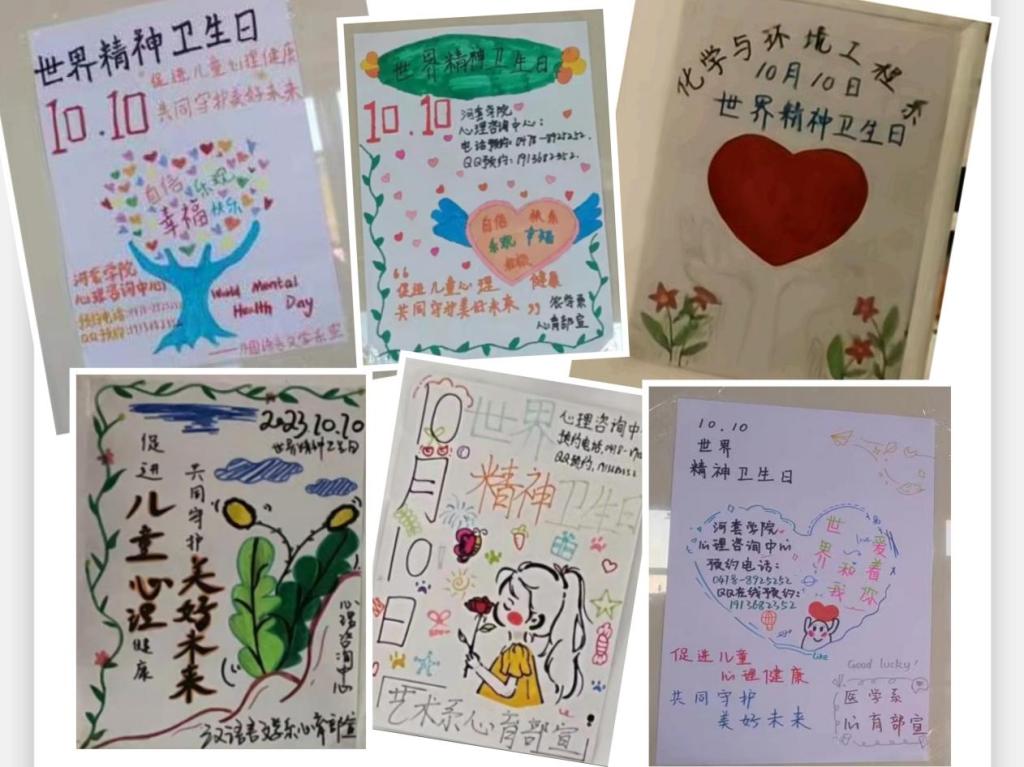 世界精神卫生日
促进儿童心理健康
10.10
共同守护美好未来
自信 乐观
幸福 快乐
河套学院
心理咨询中心
预约电话:
QQ预约:
World Mental
Health Day
世界精神卫生日
10.10
河套学院
心理咨询中心:
电话预约:0478-8925252.
QQ预约:1913682352.
自信 快乐
乐观 幸福
“促进儿童心理健康
共同守护美好未来”
农学系
心育部宣
化学与环境工程系
10月10日
世界精神卫生日
2023.10.10
世界精神卫生日
促进儿童心理健康
共同守护美好未来
心理咨询中心
汉语言文学系心育部宣
10月10日
世界
精神卫生日
心理咨询中
预约电话:
QQ预约:
艺术系心育部宣
10.10
世界
精神卫生日
河套学院
心理咨询中心
预约电话:
0478-8925252
QQ在线预约:
1913682352
世界和我
爱着你
love
like
促进儿童
心理健康
共同守护
美好未来
Good lucky!
医学系
心育部宣